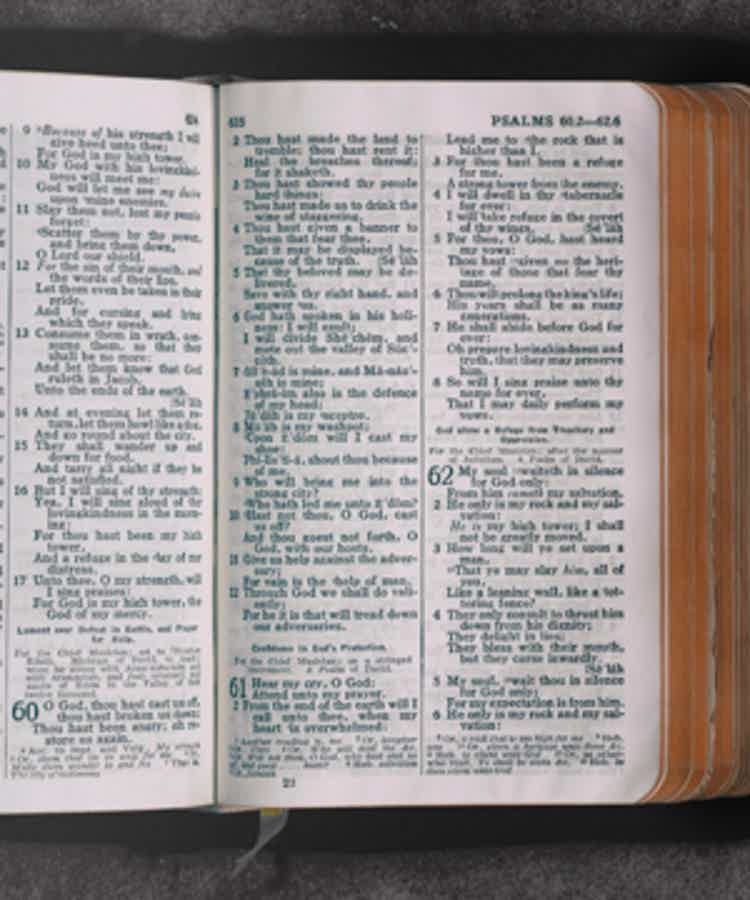 9 Because of his strength I will
give heed unto thee;
For God is my high tower.
10 My God with his lovingkind-
ness will meet me:
God will let me see my desire
upon mine enemies.
11 Slay them not, lest my people
forget:
Scatter them by thy power,
and bring them down,
O Lord our shield.
12 For the sin of their mouth, and
the words of their lips,
Let them even be taken in their
pride,
And for cursing and lying
which they speak.
13 Consume them in wrath, con-
sume them, so that they
shall be no more:
And let them know that God
ruleth in Jacob,
Unto the ends of the earth.
Selah
14 And at evening let them re-
turn, let them howl like a dog,
And go round about the city.
15 They shall wander up and
down for food,
And tarry all night if they be
not satisfied.
16 But I will sing of thy strength;
Yea, I will sing aloud of thy
lovingkindness in the morn-
ing:
For thou hast been my high
tower,
And a refuge in the day of my
distress.
17 Unto thee, O my strength, will
I sing praises:
For God is my high tower, the
God of my mercy.
60 O God, thou hast cast us off,
thou hast broken us down;
Thou hast been angry; oh re-
store us again.
615 PSALMS 60.2—62.6
2 Thou hast made the land to
tremble; thou hast rent it:
Heal the breaches thereof;
for it shaketh.
3 Thou hast showed thy people
hard things:
Thou hast made us to drink the
wine of staggering.
4 Thou hast given a banner to
them that fear thee,
That it may be displayed be-
cause of the truth. Se'lah
5 That thy beloved may be de-
livered,
Save with thy right hand, and
answer us.
6 God hath spoken in his holi-
ness: I will exult;
I will divide She'chem, and
mete out the valley of Suc'-
coth.
7 Gil'e-ad is mine, and Ma-nas'-
seh is mine;
E'phra-im also is the defence
of my head;
Ju'dah is my sceptre.
8 Mo'ab is my washpot;
Upon E'dom will I cast my
shoe:
Phi-lis'ti-a, shout thou because
of me.
9 Who will bring me into the
strong city?
Who hath led me unto E'dom?
10 Hast not thou, O God, cast
us off?
And thou goest not forth, O
God, with our hosts.
11 Give us help against the adver-
sary;
For vain is the help of man.
12 Through God we shall do vali-
antly;
For he it is that will tread down
our adversaries.
Confidence in God's Protection.
For the Chief Musician; on a stringed
instrument. A Psalm of David.
61 Hear my cry, O God;
Attend unto my prayer.
2 From the end of the earth will I
call unto thee, when my
heart is overwhelmed:
21
Lead me to the rock that is
higher than I.
3 For thou hast been a refuge
for me,
A strong tower from the enemy.
4 I will dwell in thy tabernacle
for ever:
I will take refuge in the covert
of thy wings. Se'lah
5 For thou, O God, hast heard
my vows:
Thou hast given me the heri-
tage of those that fear thy
name.
6 Thou wilt prolong the king's life;
His years shall be as many
generations.
7 He shall abide before God for
ever:
Oh prepare lovingkindness and
truth, that they may preserve
him.
8 So will I sing praise unto thy
name for ever,
That I may daily perform my
vows.
God alone a Refuge from Treachery and
Oppression.
For the Chief Musician; after the manner
of Jeduthun. A Psalm of David.
62 My soul waiteth in silence
for God only:
From him cometh my salvation.
2 He only is my rock and my sal-
vation:
He is my high tower; I shall
not be greatly moved.
3 How long will ye set upon a
man,
That ye may slay him, all of
you,
Like a leaning wall, like a tot-
tering fence?
4 They only consult to thrust him
down from his dignity;
They delight in lies;
They bless with their mouth,
but they curse inwardly.
Se'lah
5 My soul, wait thou in silence
for God only;
For my expectation is from him.
6 He only is my rock and my sal-
vation: